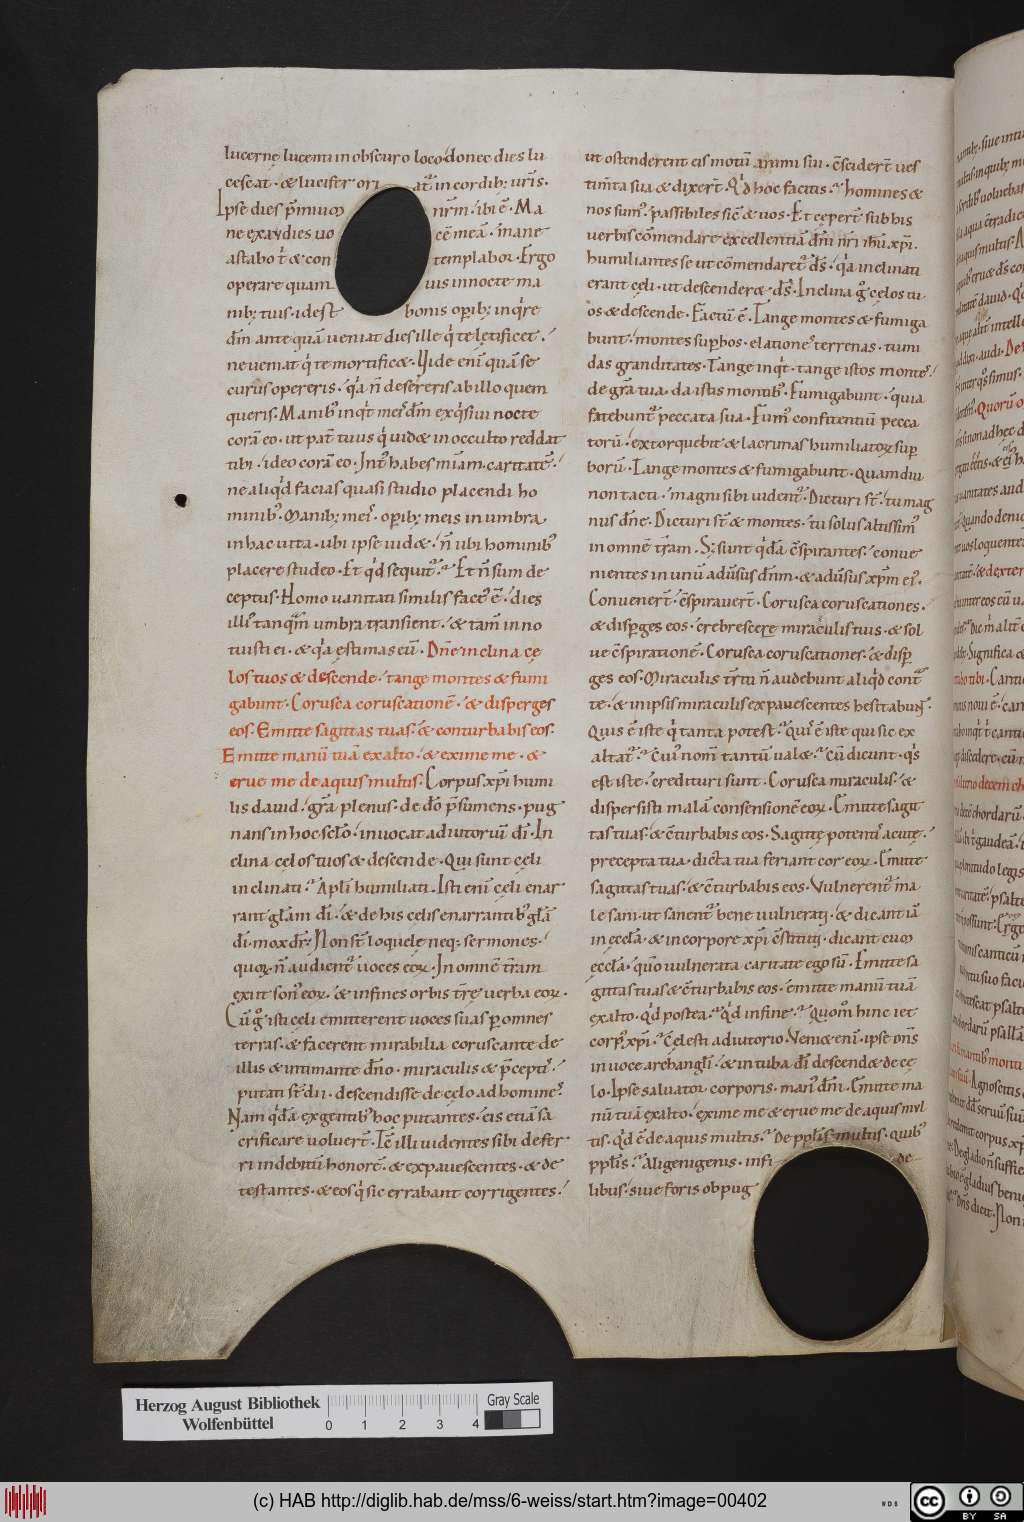 lucernę lucenti in obscuro loco donec dies lu
cescat · & lucifer ori atᷣ in cordibꝫ ur̄is ·
Ipse dies p̄mium nr̄m · ibi ē · Ma
ne exaudies uo cē meā · mane
astabo t̄ & con templabor · Ergo
operare quam uis in nocte ma
nibꝫ tuis · id est bonis op̱ibꝫ inq̇re
dm̄ ante quā ueniat dies ille q̇ te lętificet ·
ne ueniat q̇ te mortific& · Vide eni quā se
curus opereris · q̇a n̄ desereris ab illo quem
queris · Manibꝰ inq̇t meiſ dm̄ exq̇siui nocte
corā eo · ut pat̄ tuus q̇ uid& in occulto reddat
tibi · ideo corā eo · Intꝰ habes mīam · caritatē ·
ne aliq̇d facias quasi studio placendi ho
minibꝰ · Manibꝫ meiſ · op̱ibꝫ meis in umbra
in hac uita · ubi ipse uid& · n̄ ubi hominibꝰ
placere studeo · Et q̇d sequitᷣ · Et n̄ sum de
ceptus · Homo uanitati similis factꝰ ē · dies
illiꝰ tanq̄m umbra transient · & tam̄ inno
tuisti ei · & q̇a ęstimas eū · Dn̄e inclina cę
los tuos & descende · tange montes & fumi
gabunt · Corusca coruscationē · & disperges
eos · Emitte sagittas tuas · & conturbabis eos ·
Emitte manū tuā ex alto · & exime me · &
erue me de aquis multis · Corpus xp̄i humi
lis dauid · gr̄a plenus · de dō p̄sumens · pug
nans in hoc sclo · inuocat adiutoriū dī · In
clina cęlos tuos & descende · Qui sunt cęli
inclinati · Apl̄i humiliati · Isti eni cęli enar
rant gl̄am dī · & de his cęlis enarrantibꝰ gl̄ā
dī · mox dr̄ · Non st̄ loquelę neqꝫ sermones ·
quoꝝ n̄ audientᷣ uoces eoꝝ · In omnē tr̄am
exiit sonꝰ eoꝝ · & in fines orbis tr̄ę uerba eoꝝ ·
Cū g̊ isti cęli emitterent uoces suas p̱ omnes
terras · & facerent mirabilia coruscante de
illis & intimante dn̄o · miraculis & p̄ceptiſ ·
putati st̄ dii · descendisse de cęlo ad homineſ
Nam q̇dā ex gentibꝰ hoc putantes · eis etiā sa
crificare uoluer̄t · Tc̄ illi uidentes sibi defer
ri indebitū honorē · & expauescentes · & de
testantes · & eos q̇ sic errabant corrigentes ·
ut ostenderent eis motū animi sui · c̄scider̄t ues
tim̄ta sua & dixer̄t · Q̇d hoc facitis · homines &
nos sumꝰ · passibiles sic̄ & uos · Et ceper̄t sub his
uerbis cōmendare excellentiā dm̄ nr̄i ihū xp̄i ·
humiliantes se ut cōmendaretᷣ ds̄ · q̇a inclinati
erant cęli · ut descender& ds̄ · Inclina g̊ cęlos tu
os & descende · Factū ē · Tange montes & fumiga
bunt · montes sup̱bos · elationeſ terrenas · tumi
das granditates · Tange inq̇t · tange istos monteſ ·
de gr̄a tua · da istis montibꝰ · Fumigabunt · quia
fatebuntᷣ peccata sua · Fumꝰ confitentiū pecca
torū · extorquebit & lacrimas humiliatoꝝ sup̱
borū · Tange montes & fumigabunt · Quamdiu
non tacti · magni sibi uidentᷣ · Dicturi st̄ · tu mag
nus dn̄e · Dicturi st̄ & montes · tu solus altissimꝰ
in omnē tr̄am · Sꝫ sunt q̇dā c̄spirantes · conue
nientes in unū aduersus dn̄m · & aduersus xp̄m eiꝰ ·
Conuener̄t · c̄spirauer̄t · Corusca coruscationes ·
& disp̱ges eos · crebrescere miraculis tuis · & sol
ue c̄spirationē · Corusca coruscationes · & disp̱
ges eos · Miraculis tr̄ti n̄ audebunt aliq̇d cont̄
te · & in ipsis miraculis expauescentes hesitabunt ·
Quis ē iste q̇ tanta potest · Quiſ ē iste qui sic ex
altatᷣ · Cuiꝰ nom̄ tantū ual& · Cū dicunt · q̇s
est iste · credituri sunt · Corusca miraculis · &
dispersisti malā consensionē eoꝝ · Emitte sagit
tas tuas · & c̄turbabis eos · Sagittę potentiſ acutę ·
precepta tua · dicta tua feriant cor eoꝝ · Emitte
sagittas tuas · & c̄turbabis eos · Vulnerentᷣ ma
le sani · ut sanentᷣ bene uulnerati · & dicant iā
in ęccl̄a · & in corpore xp̄i c̄stituti · dicant cum
ęccl̄a · quō uulnerata caritate ego sū · Emitte sa
gittas tuas & c̄turbabis eos · emitte manū tuā
ex alto · Q̇d postea · Q̇d in fine · Quom̄ uincet
corpꝰ xp̄i · Cęlesti adiutorio · Veni& eni · ipse dn̄s
in uoce archangli · & in tuba dī descend& de cę
lo · Ipse saluator corporis · manꝰ dm̄i · Emitte ma
nū tuā ex alto · exime me & erue me de aquis mul
tis · q̇d ē de aquis multis · De ppl̄is multis · quibꝰ
ppl̄is · Aligenigenis · infi de
libus · siue foris obpug
Herzog August Bibliothek
Wolfenbüttel
0 1 2 3 4
Gray Scale
(c) HAB http://diglib.hab.de/mss/6-weiss/start.htm?image=00402
cc BY SA